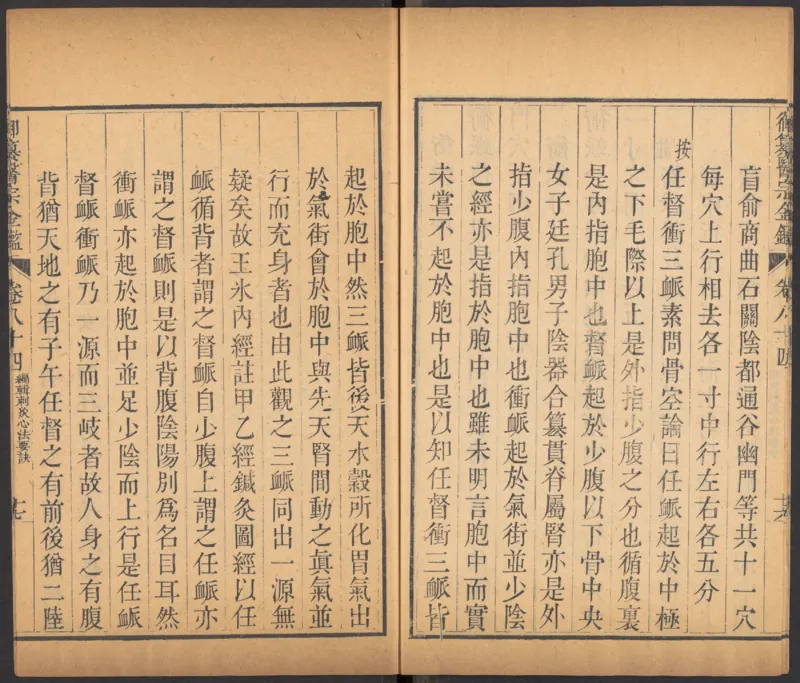 御纂醫宗金鑑
卷八十四
肓俞商曲石關陰都通谷幽門等共十一穴
每穴上行相去各一寸中行左右各五分
按任督衝三脈素問骨空論曰任脈起於中極
之下毛際以上是外指少腹之分也循腹裏
是內指胞中也督脈起於少腹以下骨中央
女子廷孔男子陰器合篡貫脊屬腎亦是外
指少腹內指胞中也衝脈起於氣街並少陰
之經亦是指於胞中也雖未明言胞中而實
未嘗不起於胞中也是以知任督衝三脈皆
起於胞中然三脈皆後天水穀所化胃氣出
於氣街會於胞中與先天腎間動之眞氣並
行而充身者也由此觀之三脈同出一源無
疑矣故王氷內經註甲乙經鍼灸圖經以任
脈循背者謂之督脈自少腹上謂之任脈亦
謂之督脈則是以背腹陰陽別爲名目耳然
衝脈亦起於胞中並足少陰而上行是任脈
督脈衝脈乃一源而三岐者故人身之有腹
背猶天地之有子午任督之有前後猶二陸
御纂醫宗金鑑
卷八十四
編輯刺灸心法要訣
十七